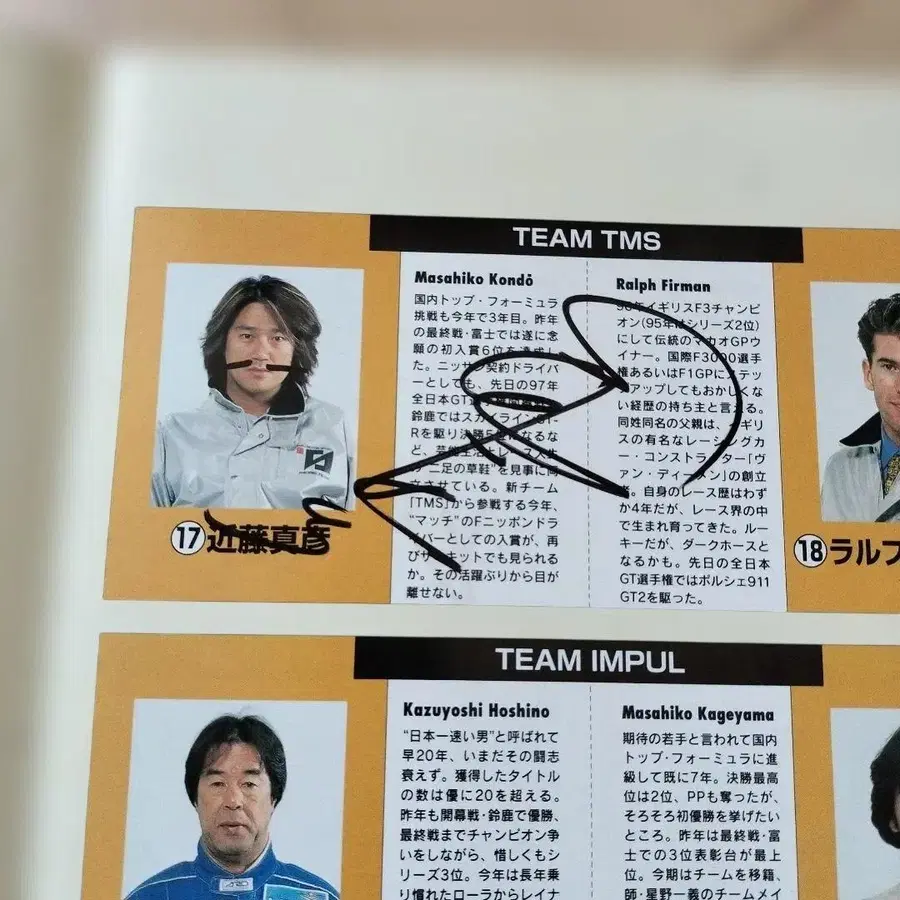 TEAM TMS
Masahiko Kondō
国内トップ・フォーミュラ
挑戦も今年で3年目。昨年
の最終戦・富士では遂に念
願の初入賞6位を達成し
た。ニッサン契約ドライバ
ーとしても、先日の97年
全日本GT選手権開幕戦
鈴鹿ではスカイラインGT-
Rを駆り決勝5位になるな
ど、芸能生活とレース人生
の"二足の草鞋"を見事に両
立させている。新チーム
「TMS」から参戦する今年、
"マッチ"のFニッポンドラ
イバーとしての入賞が、再
びサーキットでも見られる
か。その活躍ぶりから目が
離せない。
Ralph Firman
96年イギリスF3チャンピ
オン(95年はシリーズ2位)
にして伝統のマカオGPウ
イナー。国際F3000選手
権あるいはF1GPにステッ
プアップしてもおかしくな
い経歴の持ち主と言える。
同姓同名の父親は、イギリ
スの有名なレーシングカ
ー・コンストラクター「ヴ
ァン・ディーメン」の創立
者。自身のレース歴はわず
か4年だが、レース界の中
で生まれ育ってきた。ルー
キーだが、ダークホースと
なるかも。先日の全日本
GT選手権ではポルシェ911
GT2を駆った。
⑰近藤真彦
⑱ラルフ
TEAM IMPUL
Kazuyoshi Hoshino
"日本一速い男"と呼ばれて
早20年、いまだその闘志
衰えず。獲得したタイトル
の数は優に20を超える。
昨年も開幕戦・鈴鹿で優勝、
最終戦までチャンピオン争
いをしながら、惜しくもシ
リーズ3位。今年は長年乗
り慣れたローラからレイナ
Masahiko Kageyama
期待の若手と言われて国内
トップ・フォーミュラに進
級して既に7年。決勝最高
位は2位、PPも奪ったが、
そろそろ初優勝を挙げたい
ところ。昨年は最終戦・富
士での3位表彰台が最上
位。今期はチームを移籍、
師・星野一義のチームメイ